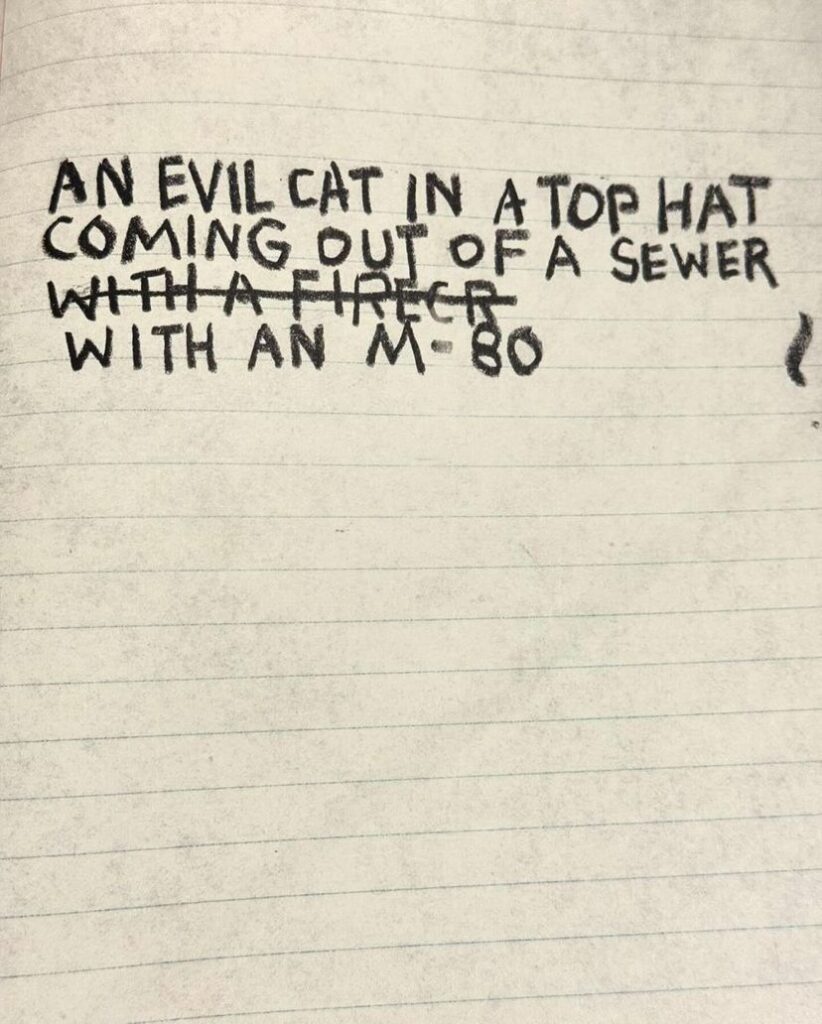 AN EVIL CAT IN A TOP HAT
COMING OUT OF A SEWER
WITH A FIRECR
WITH AN M-80